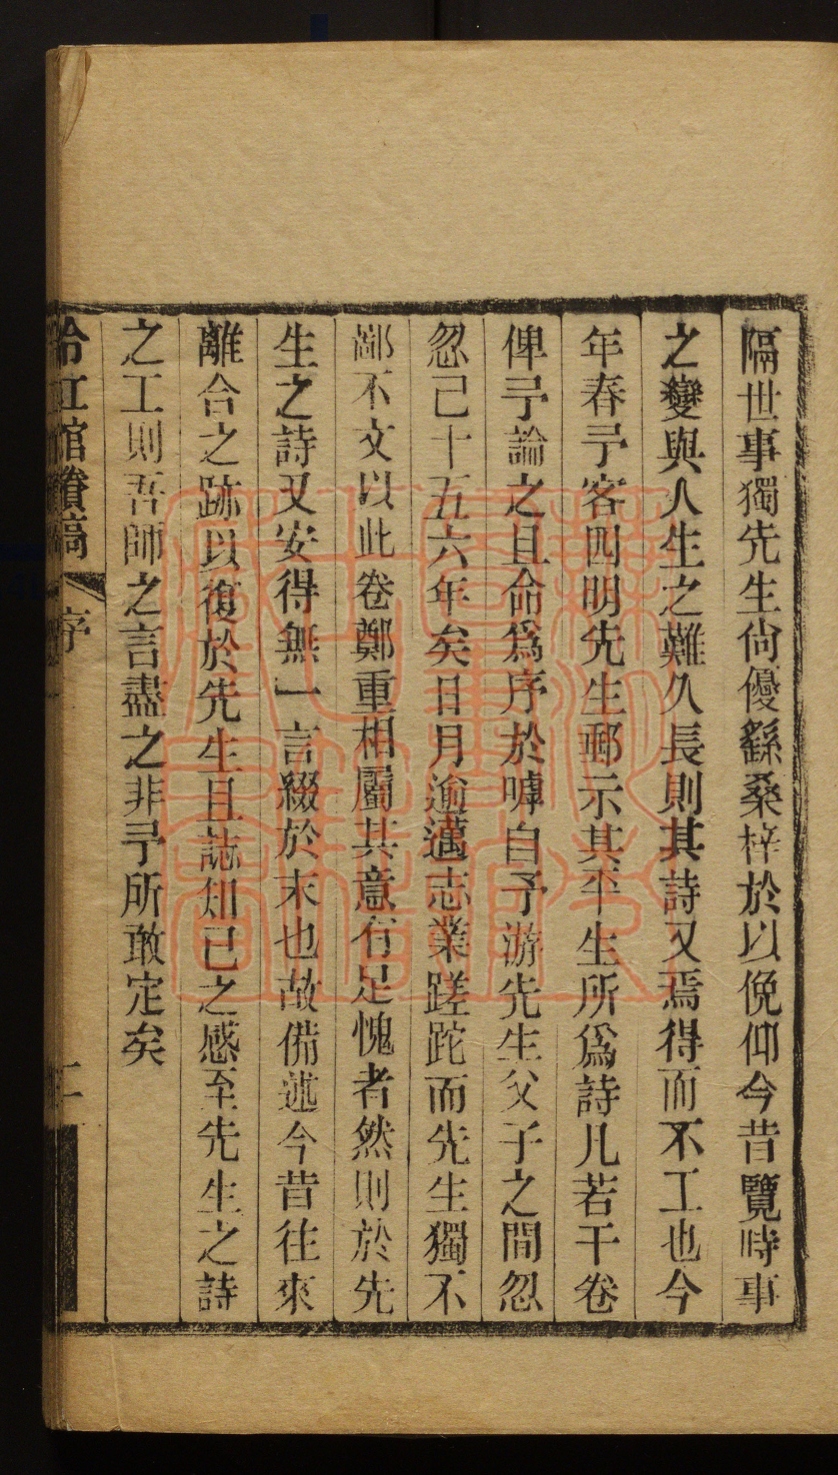 隔世事獨先生尙優繇桑梓於以俛仰今昔覽時事
之變與人生之難久長則其詩又焉得而不工也今
年春予客四明先生郵示其平生所爲詩凡若干卷
俾予論之且命爲序於嘑自予游先生父子之間忽
忽已十五六年矣日月逾邁志業蹉跎而先生獨不
鄙不文以此卷鄭重相屬其意有足愧者然則於先
生之詩又安得無一言綴於末也故備述今昔往來
離合之跡以復於先生且誌知已之感至先生之詩
之工則吾師之言盡之非予所敢定矣
館賸稿
序
二